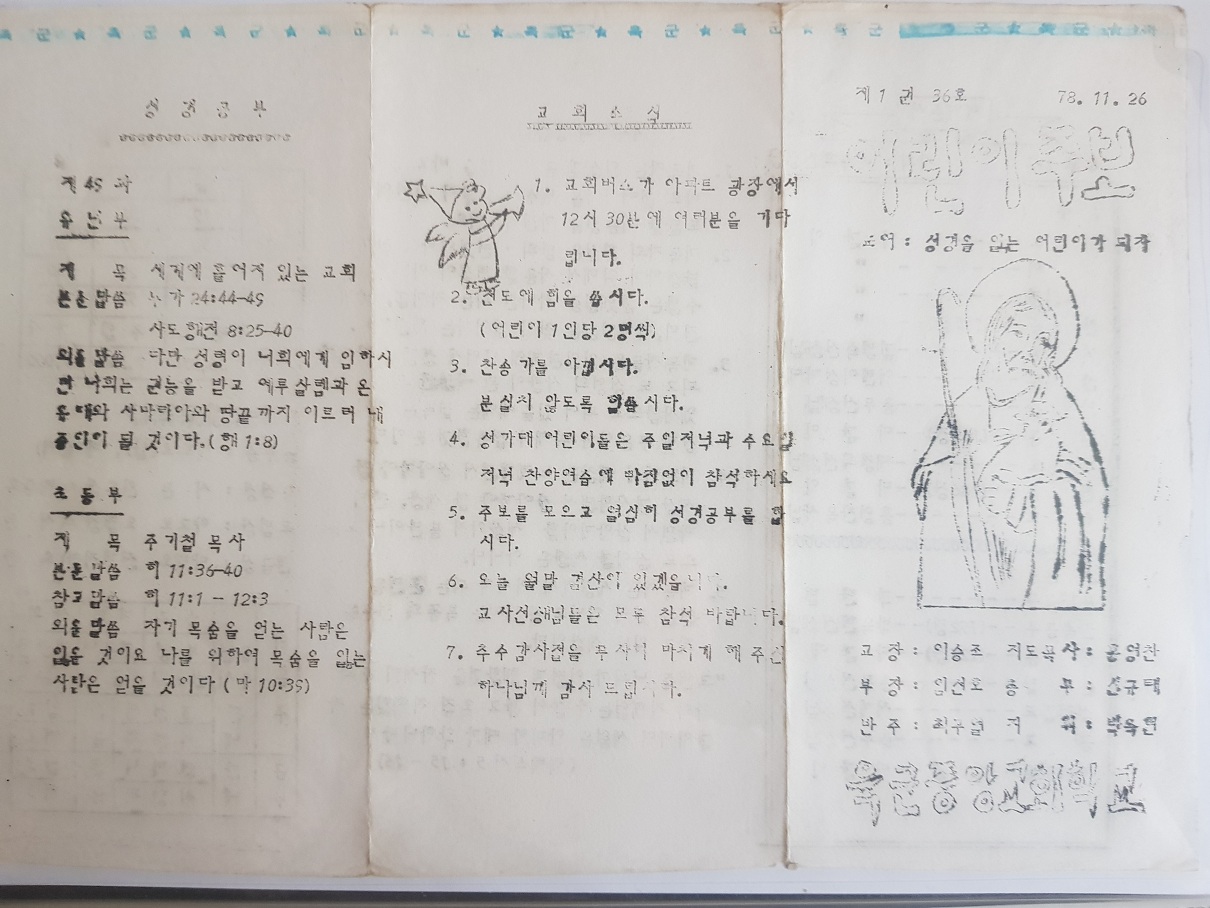 성 경 공 부
제 45 과
유 년 부
제 목 세계에 흩어져 있는 교회
본문말씀 누가 24:44-49
사도행전 8:25-40
외울말씀 다만 성령이 너희에게 임하시
면 너희는 권능을 받고 예루살렘과 온
유대와 사마리아와 땅끝까지 이르러 내
증인이 될 것이다.(행 1:8)
초 등 부
제 목 주기철 목사
본문말씀 히 11:36-40
참고말씀 히 11:1 - 12:3
외울말씀 자기 목숨을 얻는 사람은
잃을 것이요 나를 위하여 목숨을 잃는
사람은 얻을 것이다 ( 마 10:39)
교 회 소 식
1. 교회버스가 아파트 광장에서
12시 30분에 여러분을 기다
립니다.
2. 전도에 힘을 씁시다.
(어린이 1인당 2명씩)
3. 찬송가를 아낍시다.
분실치 않도록 합시다.
4. 성가대 어린이들은 주일저녁과 수요일
저녁 찬양연습에 빠짐없이 참석하세요
5. 주보를 모으고 열심히 성경공부를 합
시다.
6. 오늘 월말 결산이 있겠읍니다.
교사선생님들은 모두 참석 바랍니다.
7. 추수감사전을 무사히 마치게 해 주신
하나님께 감사 드립시다.
제 1 권 36호 78. 11. 26
어린이주보
표어 : 성경을 읽는 어린이가 되자
교 장 : 이승조 지도목사 :
부 장 : 총 무 : 신규태
반 주 : 지 휘 : 박옥련
육군중앙교회학교